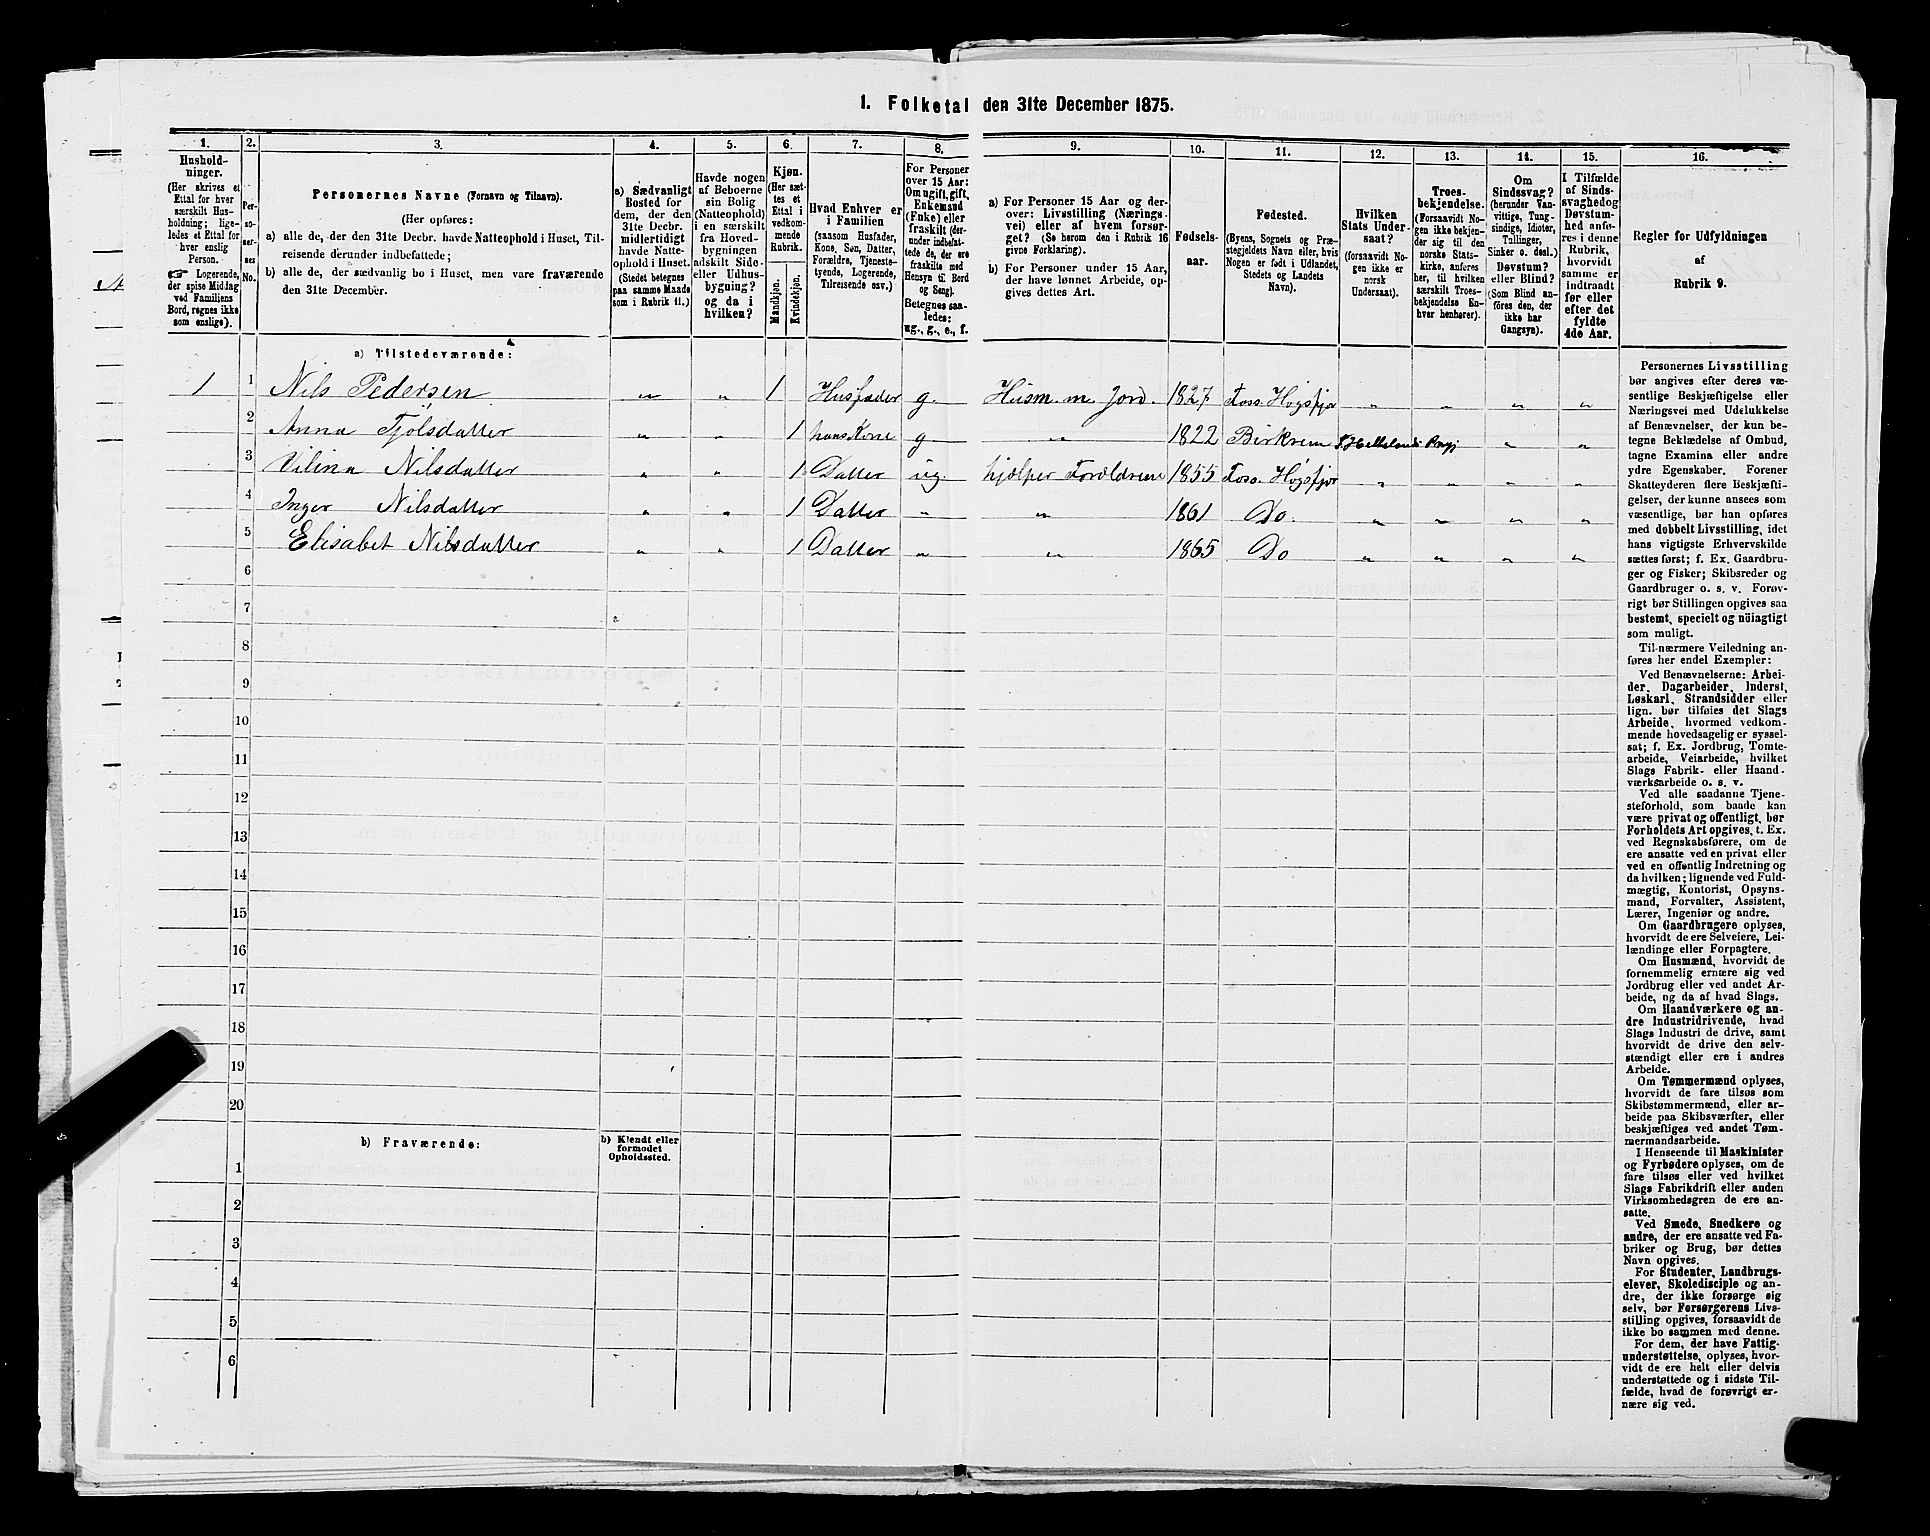 1. Folketal den 31te December 1875.
1.
Hushold-
ninger.
(Her skrives et
Ettal for hver
særskilt Hus-
holdning; lige-
ledes et Ettal for
hver enslig
Person.
☞ Logerende,
der spise Middag
ved Familiens
Bord, regnes ikke
som enslige).
2.
Per-
so-
ner-
nes
No.
3.
Personernes Navne (Fornavn og Tilnavn).
(Her opføres:
a) alle de, der den 31te Decbr. havde Natteophold i Huset, Til-
reisende derunder indbefattede;
b) alle de, der sædvanlig bo i Huset, men vare fraværende
den 31te December.
4.
a) Sædvanligt
Bosted for
dem, der den
31te Decbr.
midlertidigt
havde Natte-
ophold i Huset.
(Stedet betegnes
paa samme Maade
som i Rubrik 11.)
5.
Havde nogen
af Beboerne
sin Bolig
(Natteophold)
i en særskilt
fra Hoved-
bygningen
adskilt Side-
eller Udhus-
bygning?
og da i
hvilken?
6.
Kjøn.
(Her sæt-
tes et
Ettal i
vedkom-
mende
Rubrik.
Mandkjøn.
Kvindekjøn.
7.
Hvad Enhver er
i Familien
(saasom Husfader,
Kone, Søn, Datter,
Forældre, Tjeneste-
tyende, Logerende,
Tilreisende osv.)
8.
For Personer
over 15 Aar:
Om ugift, gift,
Enkemand
(Enke) eller
fraskilt (der-
under indbefat-
tede de, der ere
fraskilte med
Hensyn til Bord
og Seng).
Betegnes saa-
ledes:
ug., g., e., f.
9.
a) For Personer 15 Aar og der-
over: Livsstilling (Nærings-
vei) eller af hvem forsør-
get? (Se herom den i Rubrik 16
givne Forklaring).
b) For Personer under 15 Aar,
der have lønnet Arbeide, op-
gives dettes Art.
10.
Fødsels-
aar.
11.
Fødested.
(Byens, Sognets og Præ-
stegjeldets Navn eller, hvis
Nogen er født i Udlandet,
Stedets og Landets
Navn).
12.
Hvilken
Stats Under-
saat?
(forsaavidt No-
gen ikke er
norsk
Undersaat).
13.
Troes-
bekjendelse.
(Forsaavidt No-
gen ikke bekjen-
der sig til den
norske Stats-
kirke, anføres
her, til hvilken
særskilt Troes-
bekjendelse En-
hver henhører).
14.
Om
Sindssvag?
(herunder Van-
vittige, Tung-
sindige, Idioter,
Tullinger,
Sinker o. desl.)
Døvstum?
eller Blind?
(Som Blind an-
føres den, der
ikke har
Gangsyn).
15.
I Tilfælde
af Sinds-
svaghed og
Døvstum-
hed anfø-
res i denne
Rubrik,
hvorvidt
samme er
indtraadt
før eller
efter det
fyldte
4de Aar.
16.
Regler for Udfyldningen
af
Rubrik 9.
a) Tilstedeværende:
1 1 Nils Pedersen " " 1 Husfader g. Husm. m. Jord. 1827 Foss. Høgsfjor " " " "
2 Anna Tjølsdatter " " 1 hans Kone g " 1822 Birkrem Prgj " "
3 Vilina Nilsdatter " " 1 Datter ug. hjælper Forældrene 1855 Foss. Høgsfjor " " " "
4 Inger Nilsdatter " " 1 Datter " " 1861 Do. " " " "
5 Elisabet Nilsdatter " " 1 Datter " " 1865 Do " " " "
6
7
8
9
10
11
12
13
14
15
16
17
18
19
20
b) Fraværende:
b) Kjendt eller
formodet
Opholdssted.
1
2
3
4
5
6
Personernes Livsstilling
bør angives efter deres væ-
sentlige Beskjæftigelse eller
Næringsvei med Udelukkelse
af Benævnelser, der kun be-
tegne Beklædelse af Ombud,
tagne Examina eller andre
ydre Egenskaber. Forener
Skatteyderen flere Beskjæfti-
gelser, der kunne ansees som
væsentlige, bør han opføres
med dobbelt Livsstilling, idet
hans vigtigste Erhvervskilde
sættes først; f. Ex. Gaardbru-
ger og Fisker; Skibsreder og
Gaardbruger o. s. v. Forøv-
rigt bør Stillingen opgives saa
bestemt, specielt og nöiagtigt
som muligt.
Til nærmere Veiledning an-
føres her endel Exempler:
Ved Benævnelserne: Arbei-
der, Dagarbeider, Inderst,
Løskarl, Strandsidder eller
lign. bør tilføies det Slags
Arbeide, hvormed vedkom-
mende hovedsagelig er syssel-
sat; f. Ex. Jordbrug, Tomte-
arbeide, Veiarbeide, hvilket
Slags Fabrik- eller Haand-
værksarbeide o. s. v.
Ved alle saadanne Tjene-
steforhold, som baade kan
være privat og offentligt, bør
Forholdets Art opgives, t. Ex.
ved Regnskabsførere, om de
ere ansatte ved en privat eller
ved en offentlig Indretning og
da hvilken; lignende ved Fuld-
mægtig, Kontorist, Opsyns-
mand, Forvalter, Assistent,
Lærer, Ingeniør og andre.
Om Gaardbrugere oplyses,
hvorvidt de ere Selveiere, Lei-
lændinge eller Forpagtere.
Om Husmænd, hvorvidt de
fornemmelig ernære sig ved
Jordbrug eller ved andet Ar-
beide, og da af hvad Slags.
Om Haandværkere og an-
dre Industridrivende, hvad
Slags Industri de drive, samt
hvorvidt de drive den selv-
stændigt eller ere i andres
Arbeide.
Om Tømmermænd oplyses,
hvorvidt de fare tilsøs som
Skibstømmermænd, eller ar-
beide paa Skibsværfter, eller
beskjæftiges ved andet Tøm-
mermandsarbeide.
I Henseende til Maskinister
og Fyrbødere oplyses, om de
fare tilsøs eller ved hvilket
Slags Fabrikdrift eller anden
Virksomhedsgren de ere an-
satte.
Ved Smede, Snedkere og
andre, der ere ansatte ved Fa-
briker og Brug, bør dettes
Navn opgives.
For Studenter, Landbrugs-
elever, Skoledisciple og an-
dre, der ikke forsørge sig
selv, bør Forsørgerens Livs-
stilling opgives, forsaavidt de
ikke bo sammen med denne.
For dem, der have Fattig-
understøttelse, oplyses, hvor-
vidt de ere helt eller delvis
understøttede og i sidste Til-
fælde, hvad de forøvrigt er-
nære sig ved.